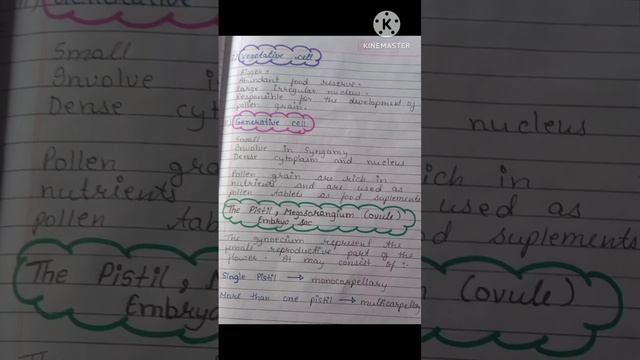 K
KINEMASTER
Vegetative cell
Bigger.
Abundant food reserve.
Large irregular nucleus.
Responsible for the development of
pollen grain.
Generative cell
Small
Involve in Syngamy
Dense cytoplasm and nucleus
Pollen grain are rich in
nutrients and are used as
pollen tablets as food suplements
The Pistil, Megasporangium (ovule)
Embryo sac
The gynoecium represent the
female reproductive part of the
flower. It may consist of :-
Single Pistil → monocarpellary
More than one pistil → multicarpellary